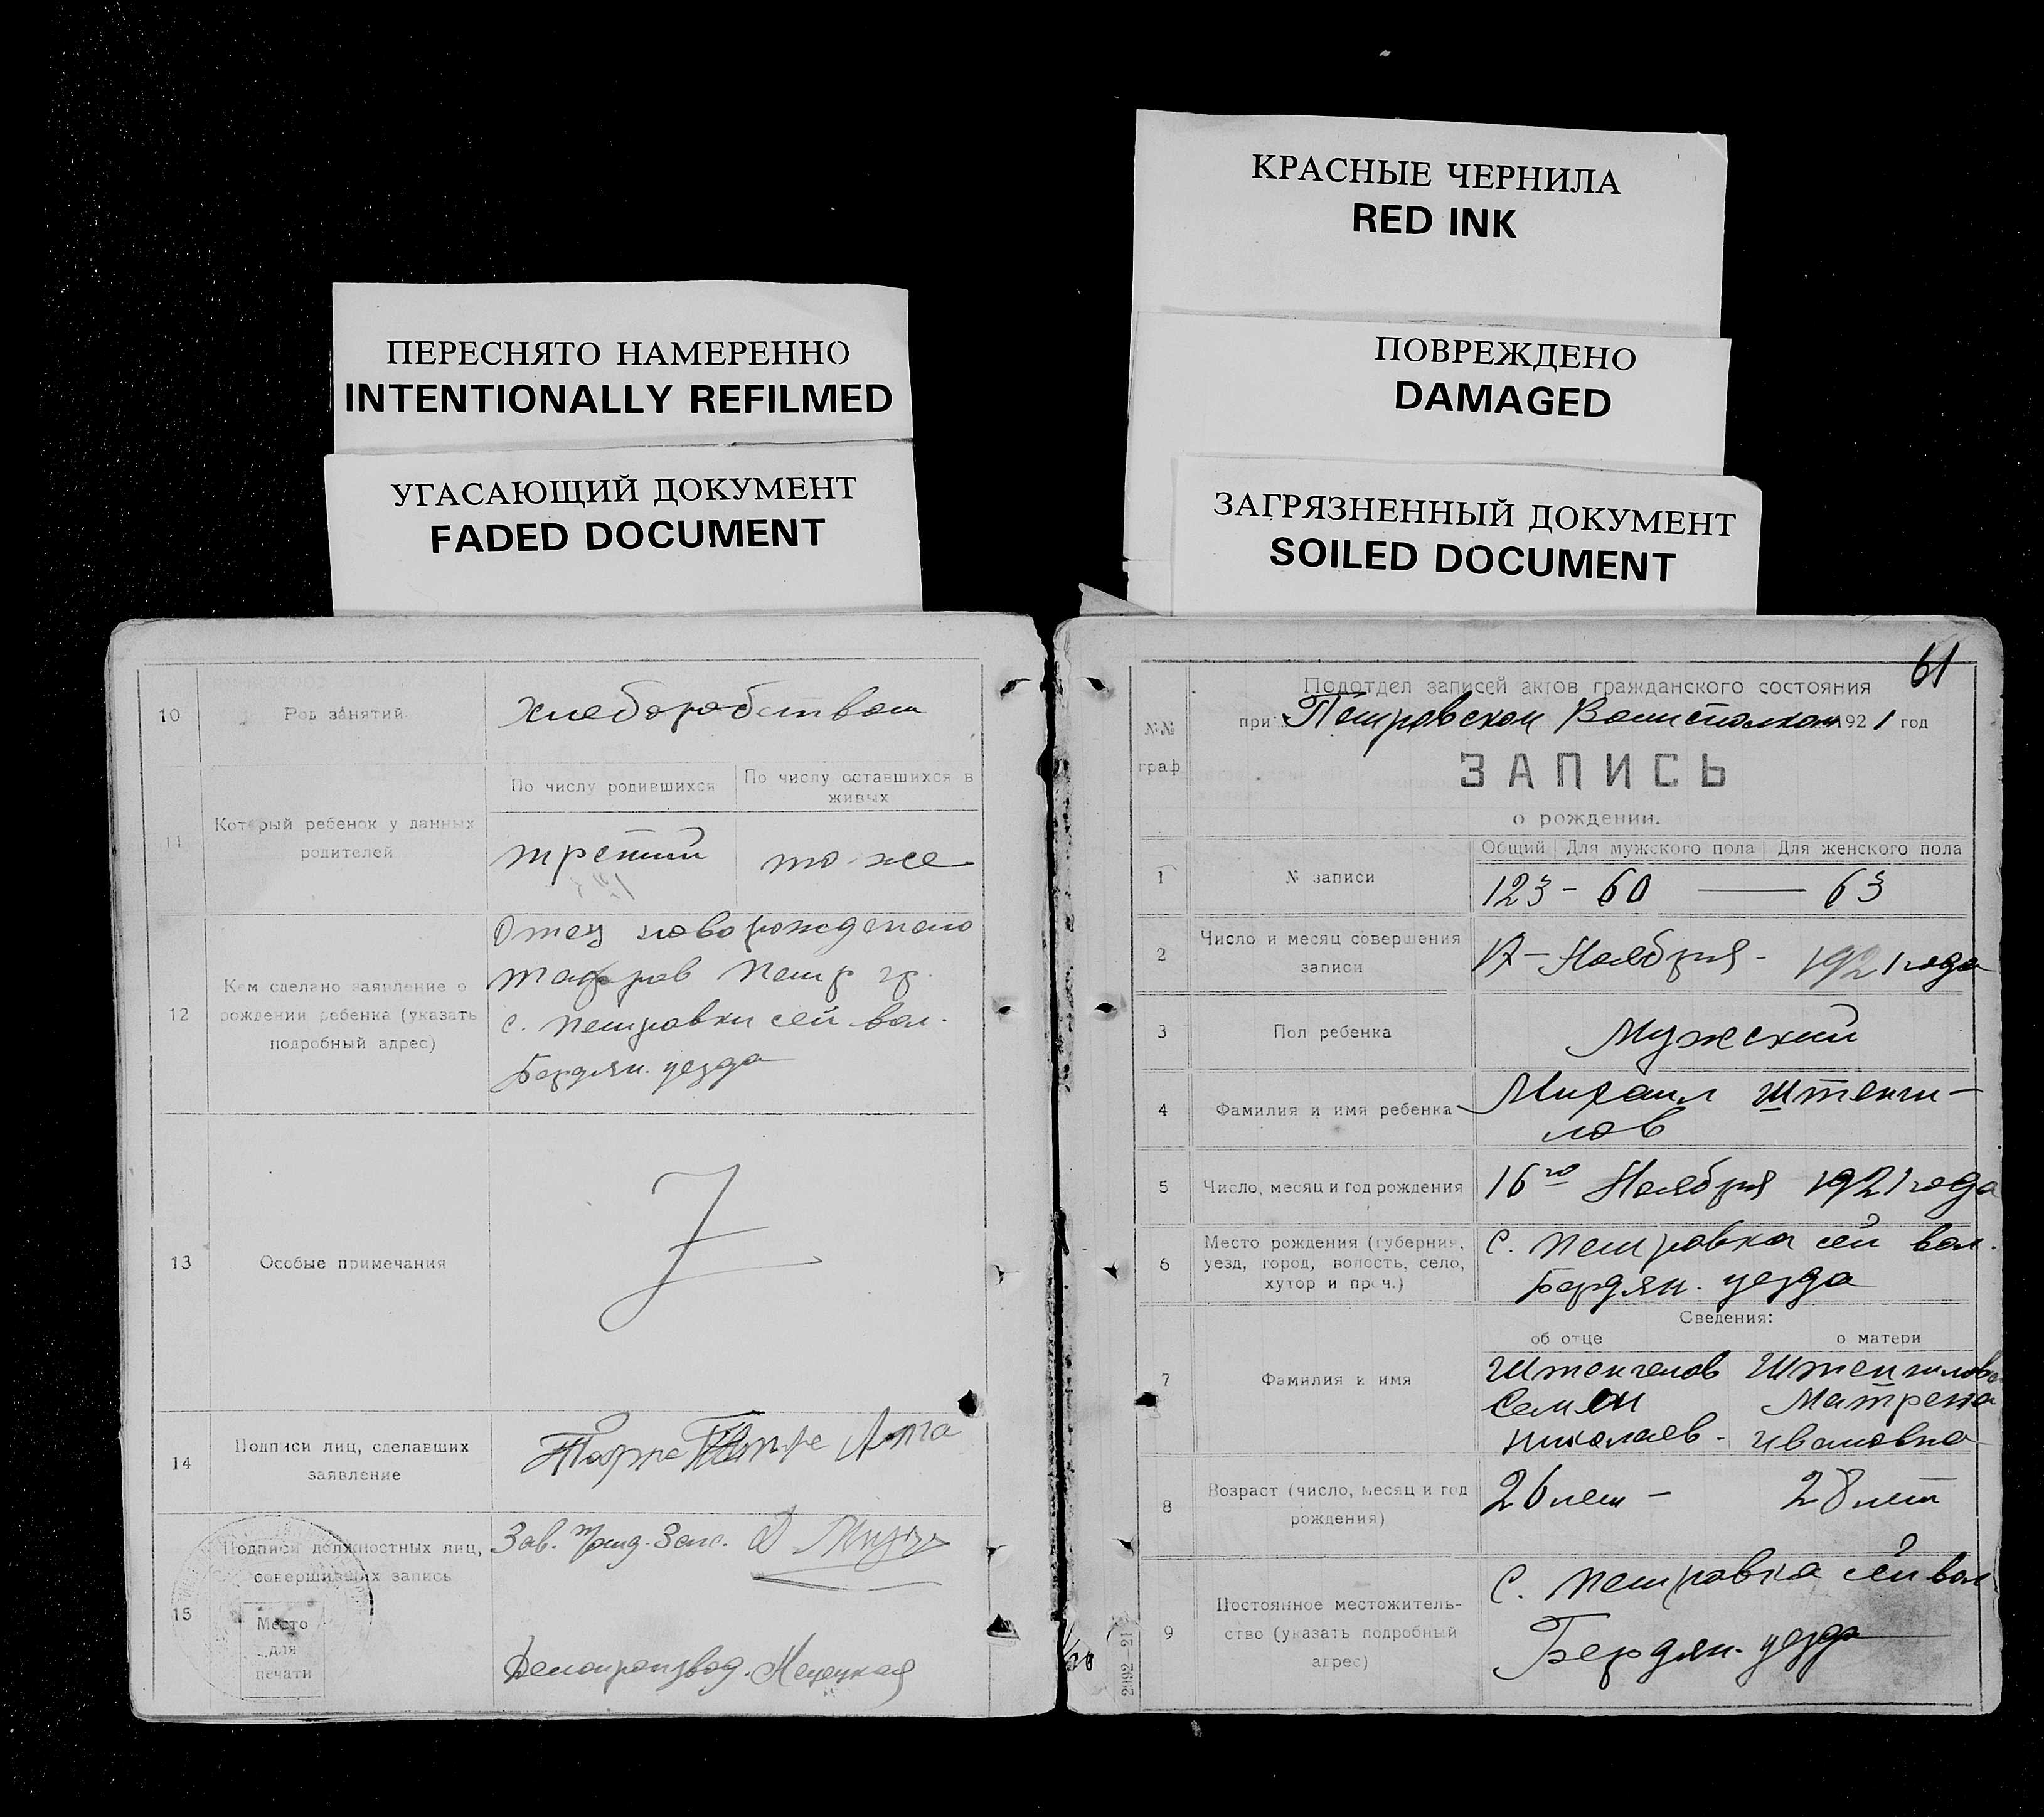 КРАСНЫЕ ЧЕРНИЛА
RED INK
ПЕРЕСНЯТО НАМЕРЕННО
INTENTIONALLY REFILMED
ПОВРЕЖДЕНО
DAMAGED
УГАСАЮЩИЙ ДОКУМЕНТ
FADED DOCUMENT
ЗАГРЯЗНЕННЫЙ ДОКУМЕНТ
SOILED DOCUMENT
10
Род занятий
хлеборобством
11
Который ребенок у данных
родителей
По числу родившихся
По числу оставшихся в
живых
третий
то-же
12
Кем сделано заявление о
рождении ребенка (указать
подробный адрес)
Отец новорожденого
Петр гр.
с. Петровки сей вол.
Бердян. уезда
13
Особые примечания
14
Подписи лиц, сделавших
заявление
15
Подписи должностных лиц,
совершивших запись
Место
для
печати
Зав.
Делопроизвод.
61
№№
граф
Подотдел записей актов гражданского состояния
при Петровском Волисполком 1921 год
ЗАПИСЬ
о рождении.
1
№ записи
Общий
Для мужского пола
Для женского пола
123 - 60 — 63
2
Число и месяц совершения
записи
17 - Ноября - 1921 года
3
Пол ребенка
Мужский
4
Фамилия и имя ребенка
Михаил Штенги-
лов
5
Число, месяц и год рождения
16го Ноября 1921 года
6
Место рождения (губерния,
уезд, город, волость, село,
хутор и проч.)
с. Петровка сей вол.
Бердян. уезда
7
Фамилия и имя
Сведения:
об отце
о матери
Штенгелов
Семен
Николаев-
Штенгилова
Матрена
Ивановна
8
Возраст (число, месяц и год
рождения)
26 лет - 28 лет
9
Постоянное местожитель-
ство (указать подробный
адрес)
С. Петровка сей вол
Бердян. уезда
2992—21